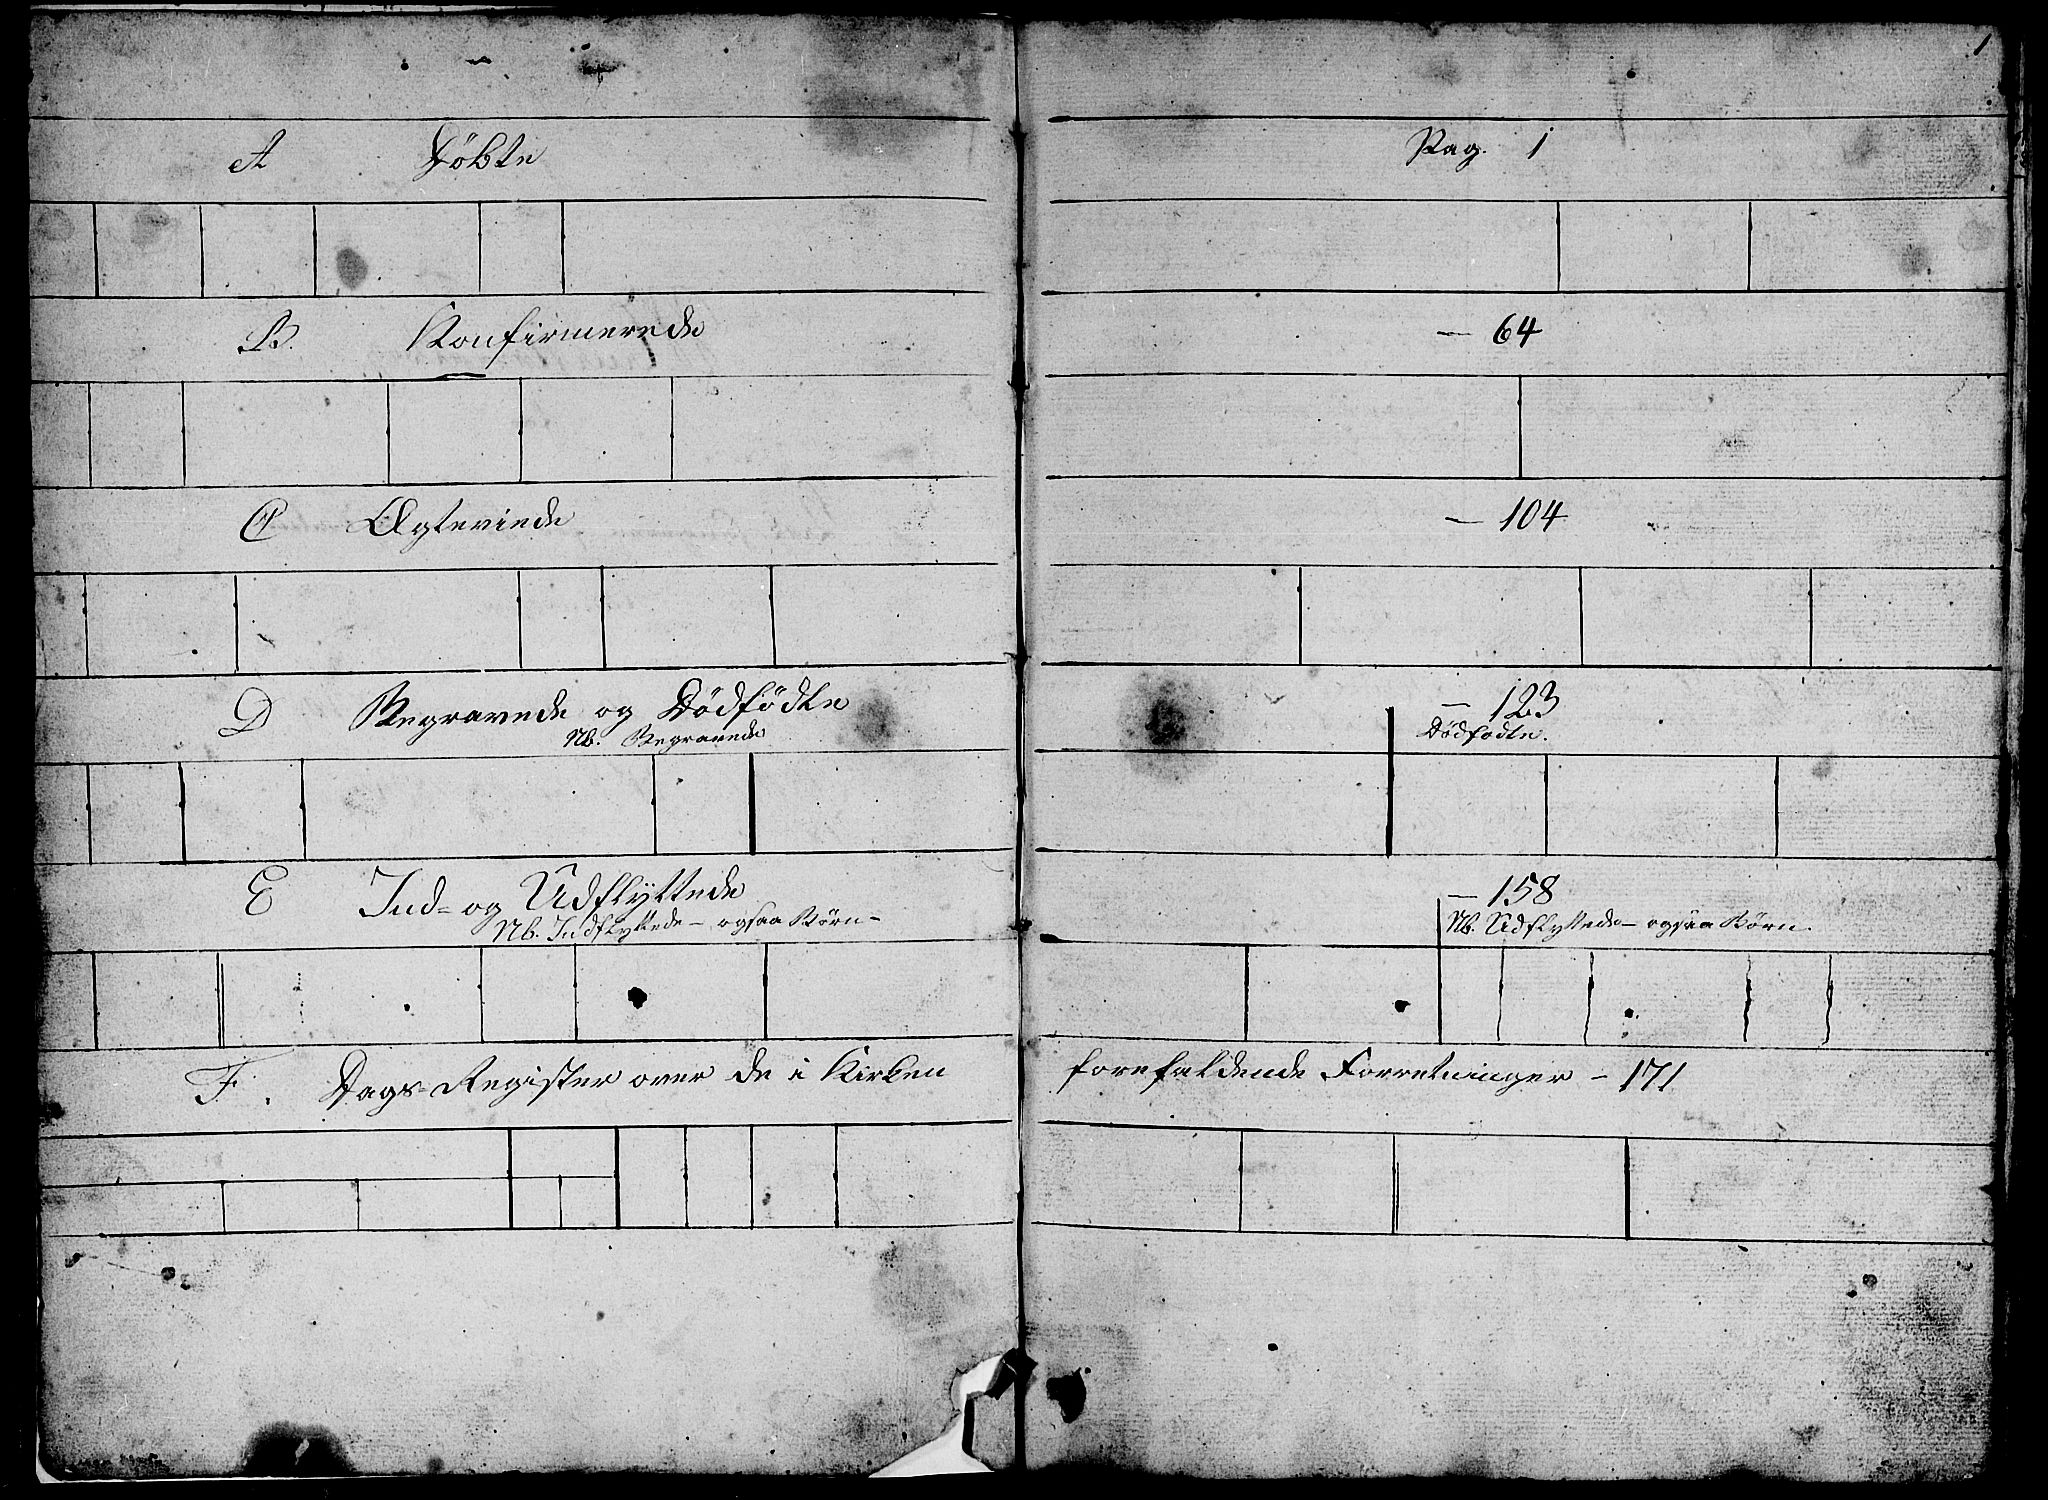 1
A Døbte Pag. 1
B. Konfirmerede — 64
C Ægteviede — 104
D Begravede og Dödfödte — 123
Nb. Begravede Dödfödte.
E Ind- og Udflyttede — 158
Nb. Indflyttede — ogsaa Børn — Nb. Udflyttede — ogsaa Børn.
F. Dags-Register over de i Kirken forefaldende Forretninger — 171